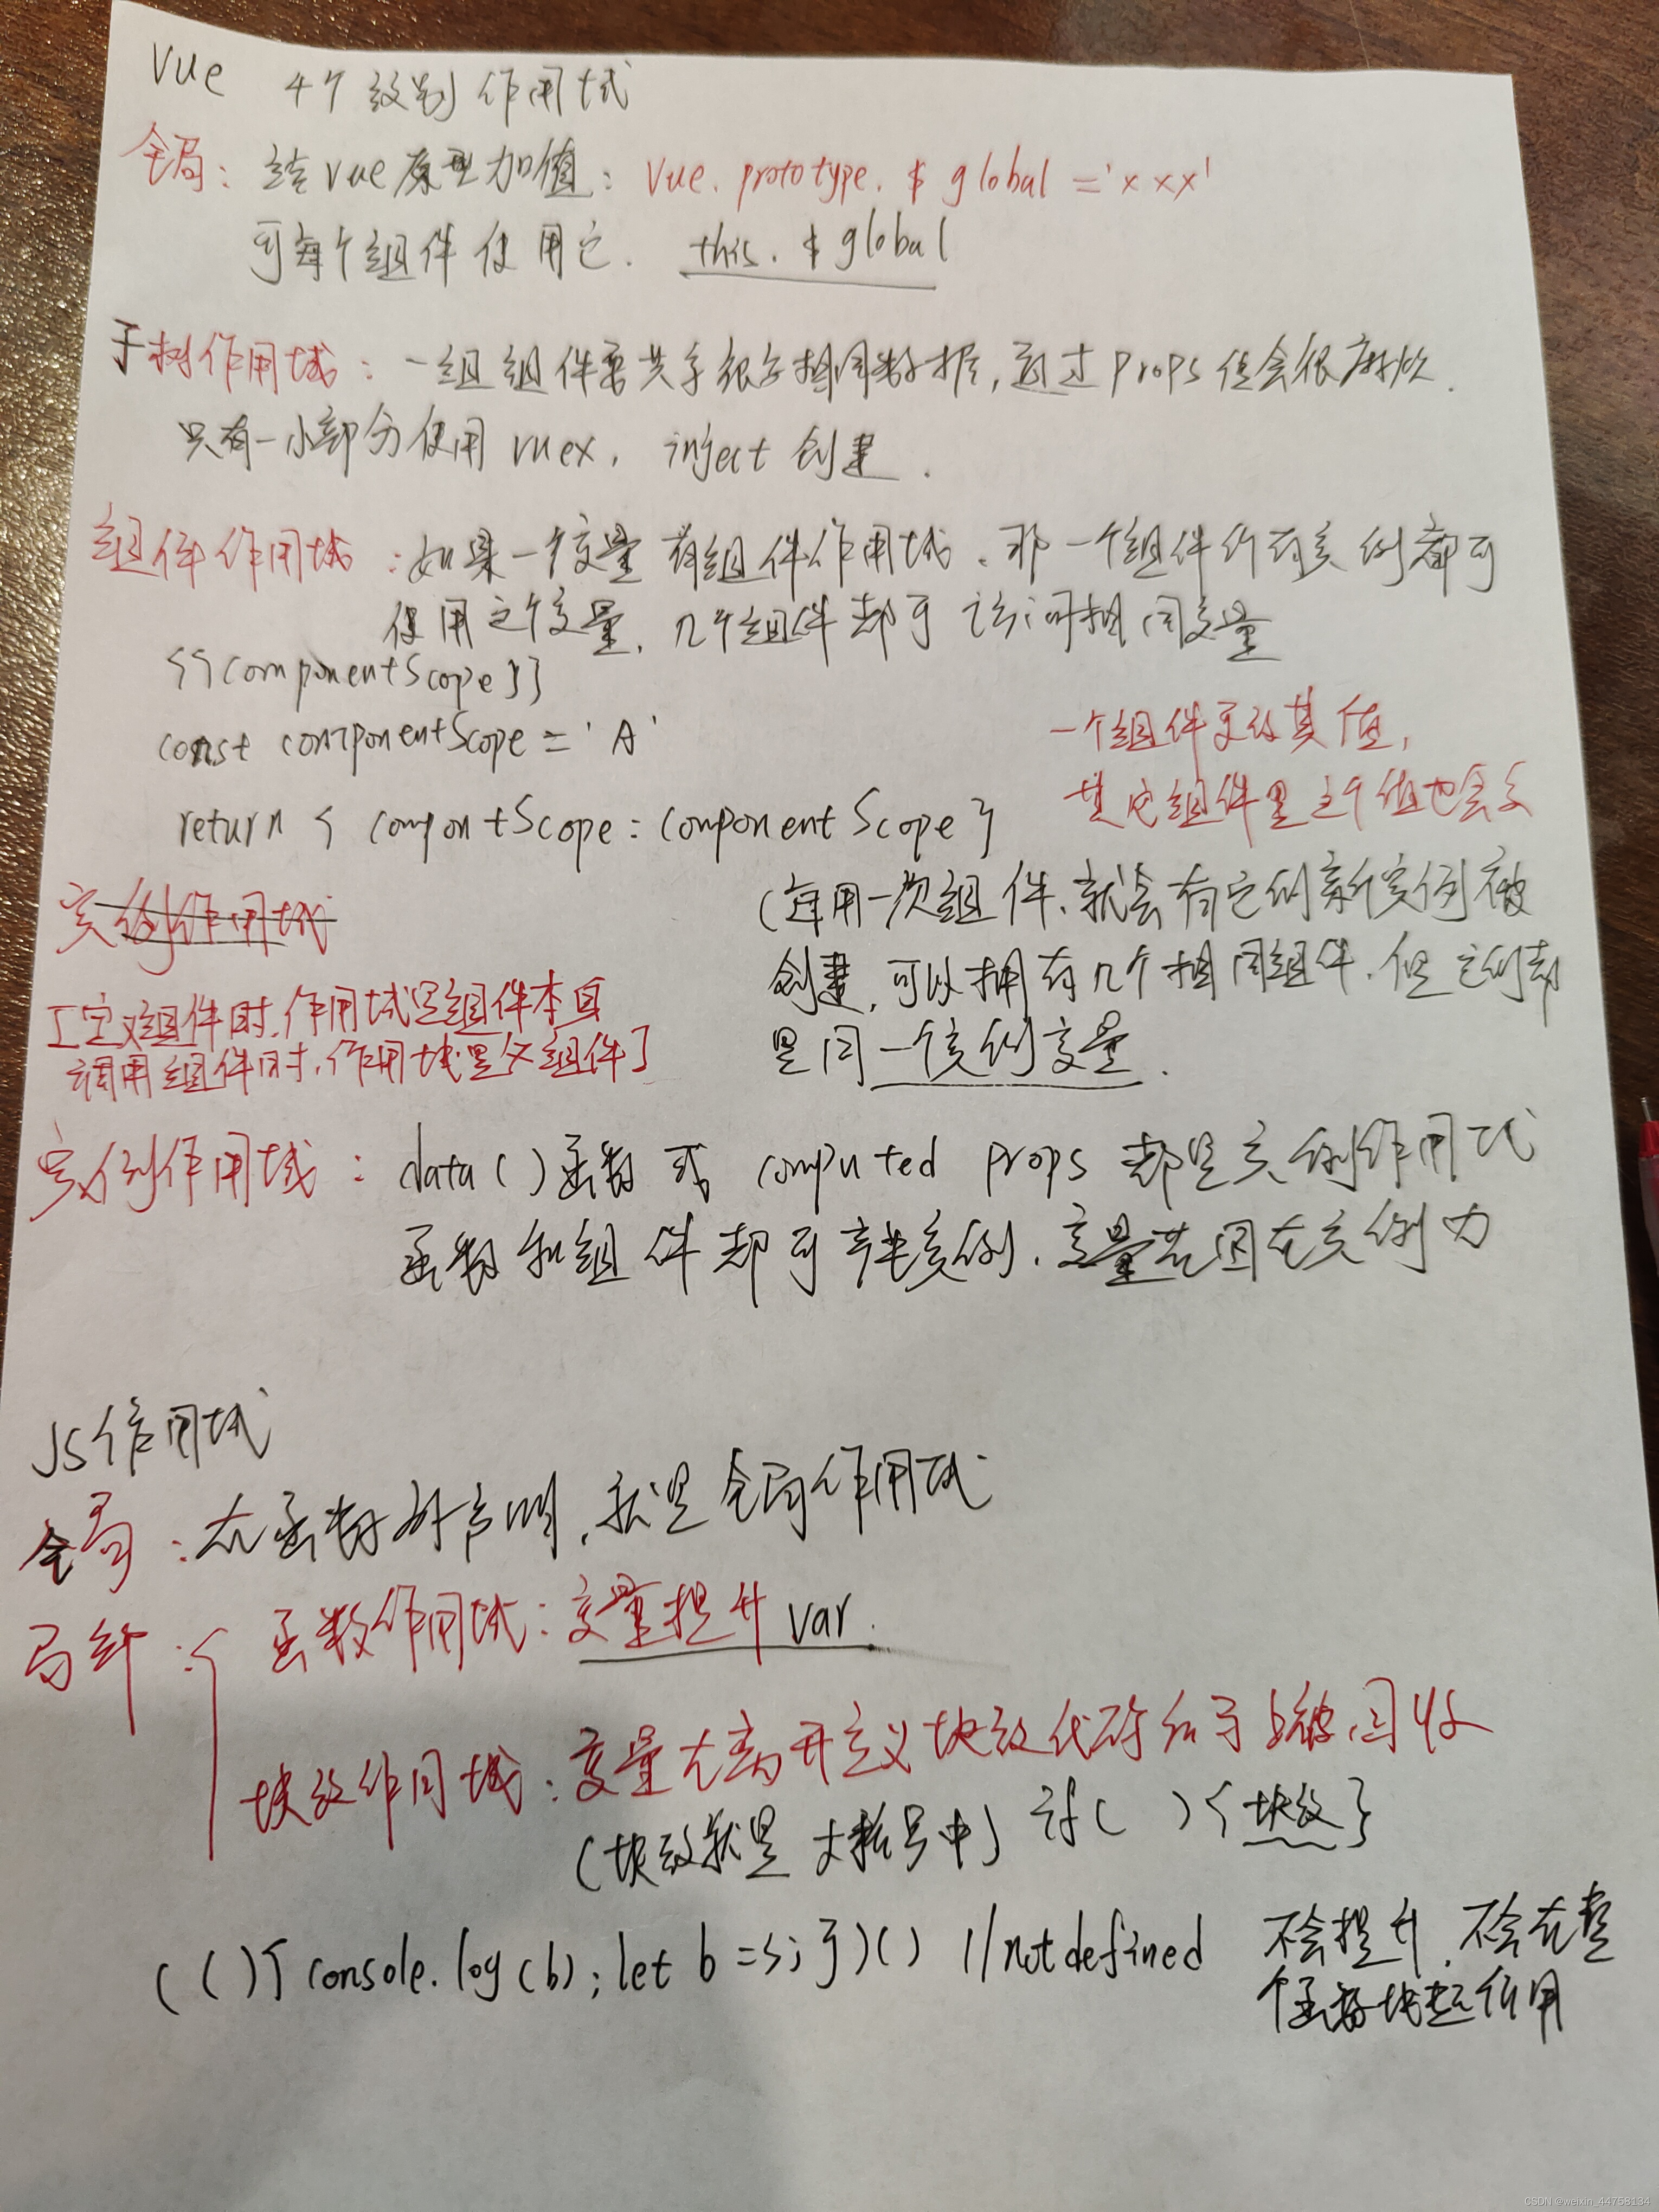 Vue 4个级别作用域
全局：给Vue原型加值：Vue.prototype.$global='xxx'
可每个组件使用它. this.$global
子树作用域：一组组件要共享很多相同数据，通过props传会很麻烦.
只有一小部分使用vuex，inject创建.
组件作用域：如果一个变量有组件作用域、那一个组件所有实例都可
使用这个变量，几个组件都可访问相同变量
{{componentScope}}
const componentScope='A'
return { compontScope:componentScope}
一个组件更改其值，
其它组件里这个值也会变
(每用一次组件、就会有它的新实例被
创建，可以拥有几个相同组件.但它们都
是同一个实例变量.
实例作用域
[定义组件时.作用域是组件本身
调用组件时.作用域是父组件]
实例作用域：data()函数或 computed props 都是实例作用域
函数和组件都可产生实例.变量范围在实例内
JS作用域
全局：在函数外声明,就是全局作用域
局部：{ 函数作用域：变量提升var.
块级作用域：变量在离开定义块级代码后于上被回收
(块级就是大括号中) if( ){块级}
((){console.log(b);let b=3;})() //not defined 不会提升.不会在整
个函数块起作用
CSDN @weixin_44758134